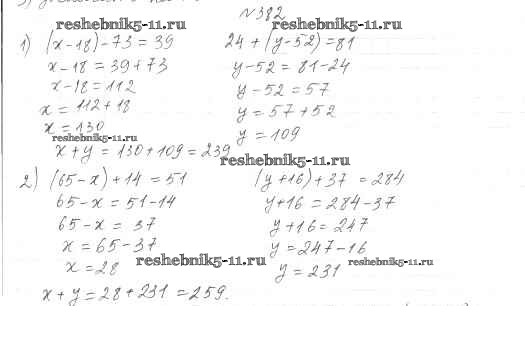 №382
reshebnik5-11.ru
1) (x-18)-73=39
x-18=39+73
x-18=112
x=112+18
x=130
24+(y-52)=81
y-52=81-24
y-52=57
y=57+52
y=109
reshebnik5-11.ru
x+y=130+109=239
reshebnik5-11.ru
2) (65-x)+14=51
65-x=51-14
65-x=37
x=65-37
x=28
(y+16)+37=284
y+16=284-37
y+16=247
y=247-16
y=231
reshebnik5-11.ru
reshebnik5-11.ru
x+y=28+231=259.